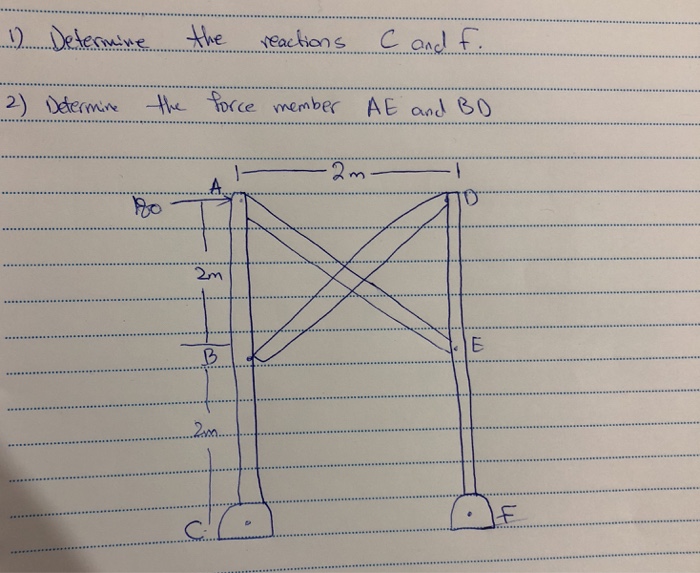 1) Determine the reactions C and F.
2) Determine the force member AE and BD
2m
A
D
180
2m
B
E
2m
C
F